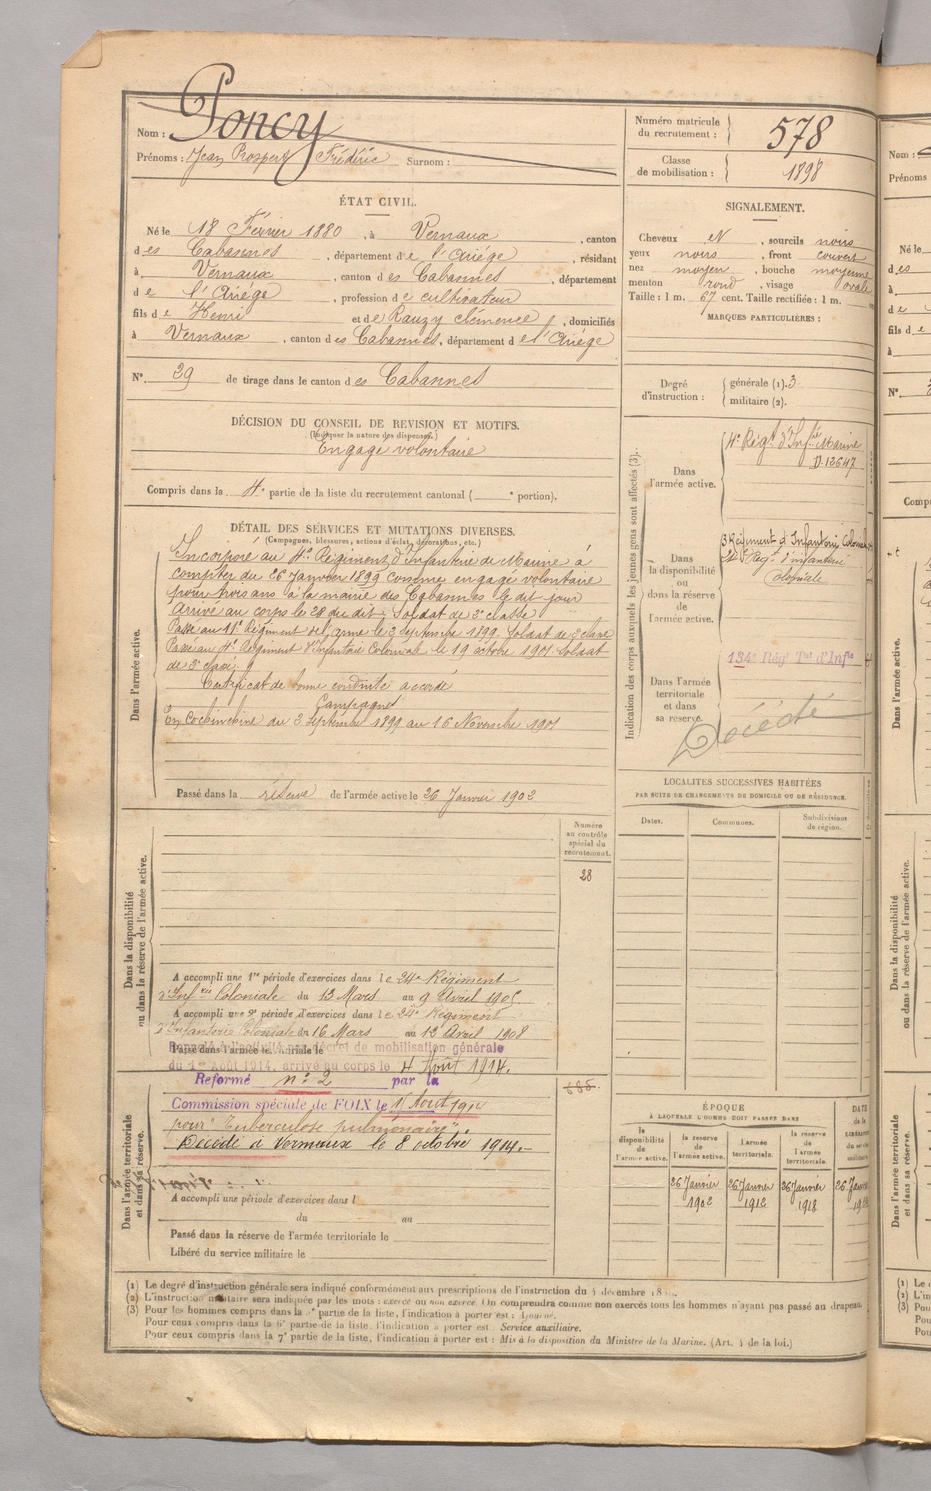 Nom : Poncy
Prénoms : Jean Prosper Frédéric Surnom :
Numéro matricule du recrutement : 578
Classe de mobilisation : 1898
ÉTAT CIVIL.
Né le 18 Février 1880, à Vernaux, canton
des Cabannes, département de l'Ariége, résidant
à Vernaux, canton des Cabannes, département
de l'Ariége, profession de cultivateur
fils de Henri et de Rauzy Clémence, domiciliés
à Vernaux, canton des Cabannes, département de l'Ariége
N° 29 de tirage dans le canton des Cabannes
SIGNALEMENT.
Cheveux N, sourcils noirs
yeux noirs, front couvert
nez moyen, bouche moyenne
menton rond, visage ovale
Taille : 1 m. 67 cent. Taille rectifiée : 1 m.
MARQUES PARTICULIÈRES :
Degré d'instruction : générale (1). 3
militaire (2).
DÉCISION DU CONSEIL DE REVISION ET MOTIFS.
(Indiquer la nature des dispenses.)
Engagé volontaire
Compris dans la 4e partie de la liste du recrutement cantonal ( e portion).
DÉTAIL DES SERVICES ET MUTATIONS DIVERSES.
(Campagnes, blessures, actions d'éclat, décorations, etc.)
Dans l'armée active.
Incorporé au 4e Régiment d'Infanterie de Marine à
compter du 26 Janvier 1899 comme engagé volontaire
pour trois ans à la mairie des Cabannes le dit jour
Arrivé au corps le 28 du dit. Soldat de 2e classe
Passé au 11e Régiment de l'arme le 3 Septembre 1899. Soldat de 2e classe
Passé au 4e Régiment d'Infanterie Coloniale le 19 octobre 1901 Soldat
de 2e classe
Certificat de bonne conduite accordé
Campagne
En Cochinchine du 3 Septembre 1899 au 16 Novembre 1901
Passé dans la réserve de l'armée active le 26 Janvier 1902
Indication des corps auxquels les jeunes gens sont affectés (3).
Dans l'armée active.
4e Régt d'Infie Marine
D. 12647
Dans la disponibilité ou dans la réserve de l'armée active.
3 Régiment d'Infanterie Coloniale
24e Régt d'infanterie
Coloniale
Dans l'armée territoriale et dans sa réserve.
134e Régt Tal d'Infie
Décédé
LOCALITÉS SUCCESSIVES HABITÉES
PAR SUITE DE CHANGEMENTS DE DOMICILE OU DE RÉSIDENCE.
Dates.
Communes.
Subdivisions de région.
Dans la disponibilité ou dans la réserve de l'armée active.
Numéro au contrôle spécial du recrutement.
28
A accompli une 1re période d'exercices dans le 24e Régiment
d'Infrie Coloniale du 13 Mars au 9 Avril 1905
A accompli une 2e période d'exercices dans le 24e Régiment
d'Infanterie Coloniale du 16 Mars au 12 Avril 1908
Passé dans l'armée territoriale le
Rappelé à l'activité par décret de mobilisation générale
du 1er Août 1914, arrivé au corps le 4 Août 1914.
Dans l'armée territoriale et dans sa réserve.
Reformé n° 2 par la
Commission spéciale de FOIX le 11 Aout 1914
pour "Tuberculose pulmonaire".
Décédé à Vernaux le 8 octobre 1914.
A accompli une période d'exercices dans l
du au
Passé dans la réserve de l'armée territoriale le
Libéré du service militaire le
ÉPOQUE
À LAQUELLE L'HOMME DOIT PASSER DANS
la disponibilité de l'armée active.
la réserve de l'armée active.
l'armée territoriale.
la réserve de l'armée territoriale.
DATE de la
26 Janvier 1902
26 Janvier 1912
26 Janvier 1918
(1) Le degré d'instruction générale sera indiqué conformément aux prescriptions de l'instruction du 4 décembre
(2) L'instruction militaire sera indiquée par les mots : exercé ou non exercé. On comprendra comme non exercés tous les hommes n'ayant pas passé au drapeau.
(3) Pour les hommes compris dans la partie de la liste, l'indication à porter est : Ajourné.
Pour ceux compris dans la 6e partie de la liste, l'indication à porter est : Service auxiliaire.
Pour ceux compris dans la 7e partie de la liste, l'indication à porter est : Mis à la disposition du Ministre de la Marine. (Art. 4 de la loi.)